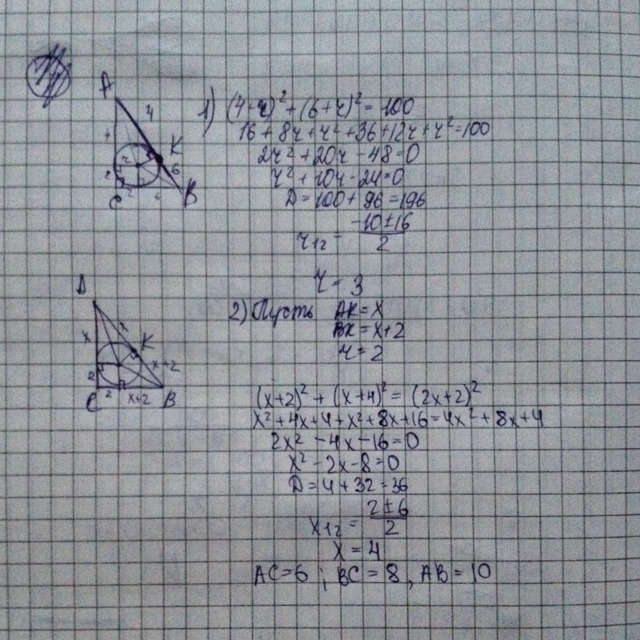 A
4
1) (4+r)² + (6+r)² = 100
16 + 8r + r² + 36 + 12r + r² = 100
K
2r² + 20r - 48 = 0
6
r² + 10r - 24 = 0
D = 100 + 96 = 196
C
B
r₁₂ = -10±16 / 2
r = 3
2) Пусть AK = x
BK = x+2
r = 2
x
K
x
2
x+2
C 2 x+2 B
(x+2)² + (x+4)² = (2x+2)²
x² + 4x + 4 + x² + 8x + 16 = 4x² + 8x + 4
2x² - 4x - 16 = 0
x² - 2x - 8 = 0
D = 4 + 32 = 36
x₁₂ = 2±6 / 2
x = 4
AC = 6 ; BC = 8, AB = 10